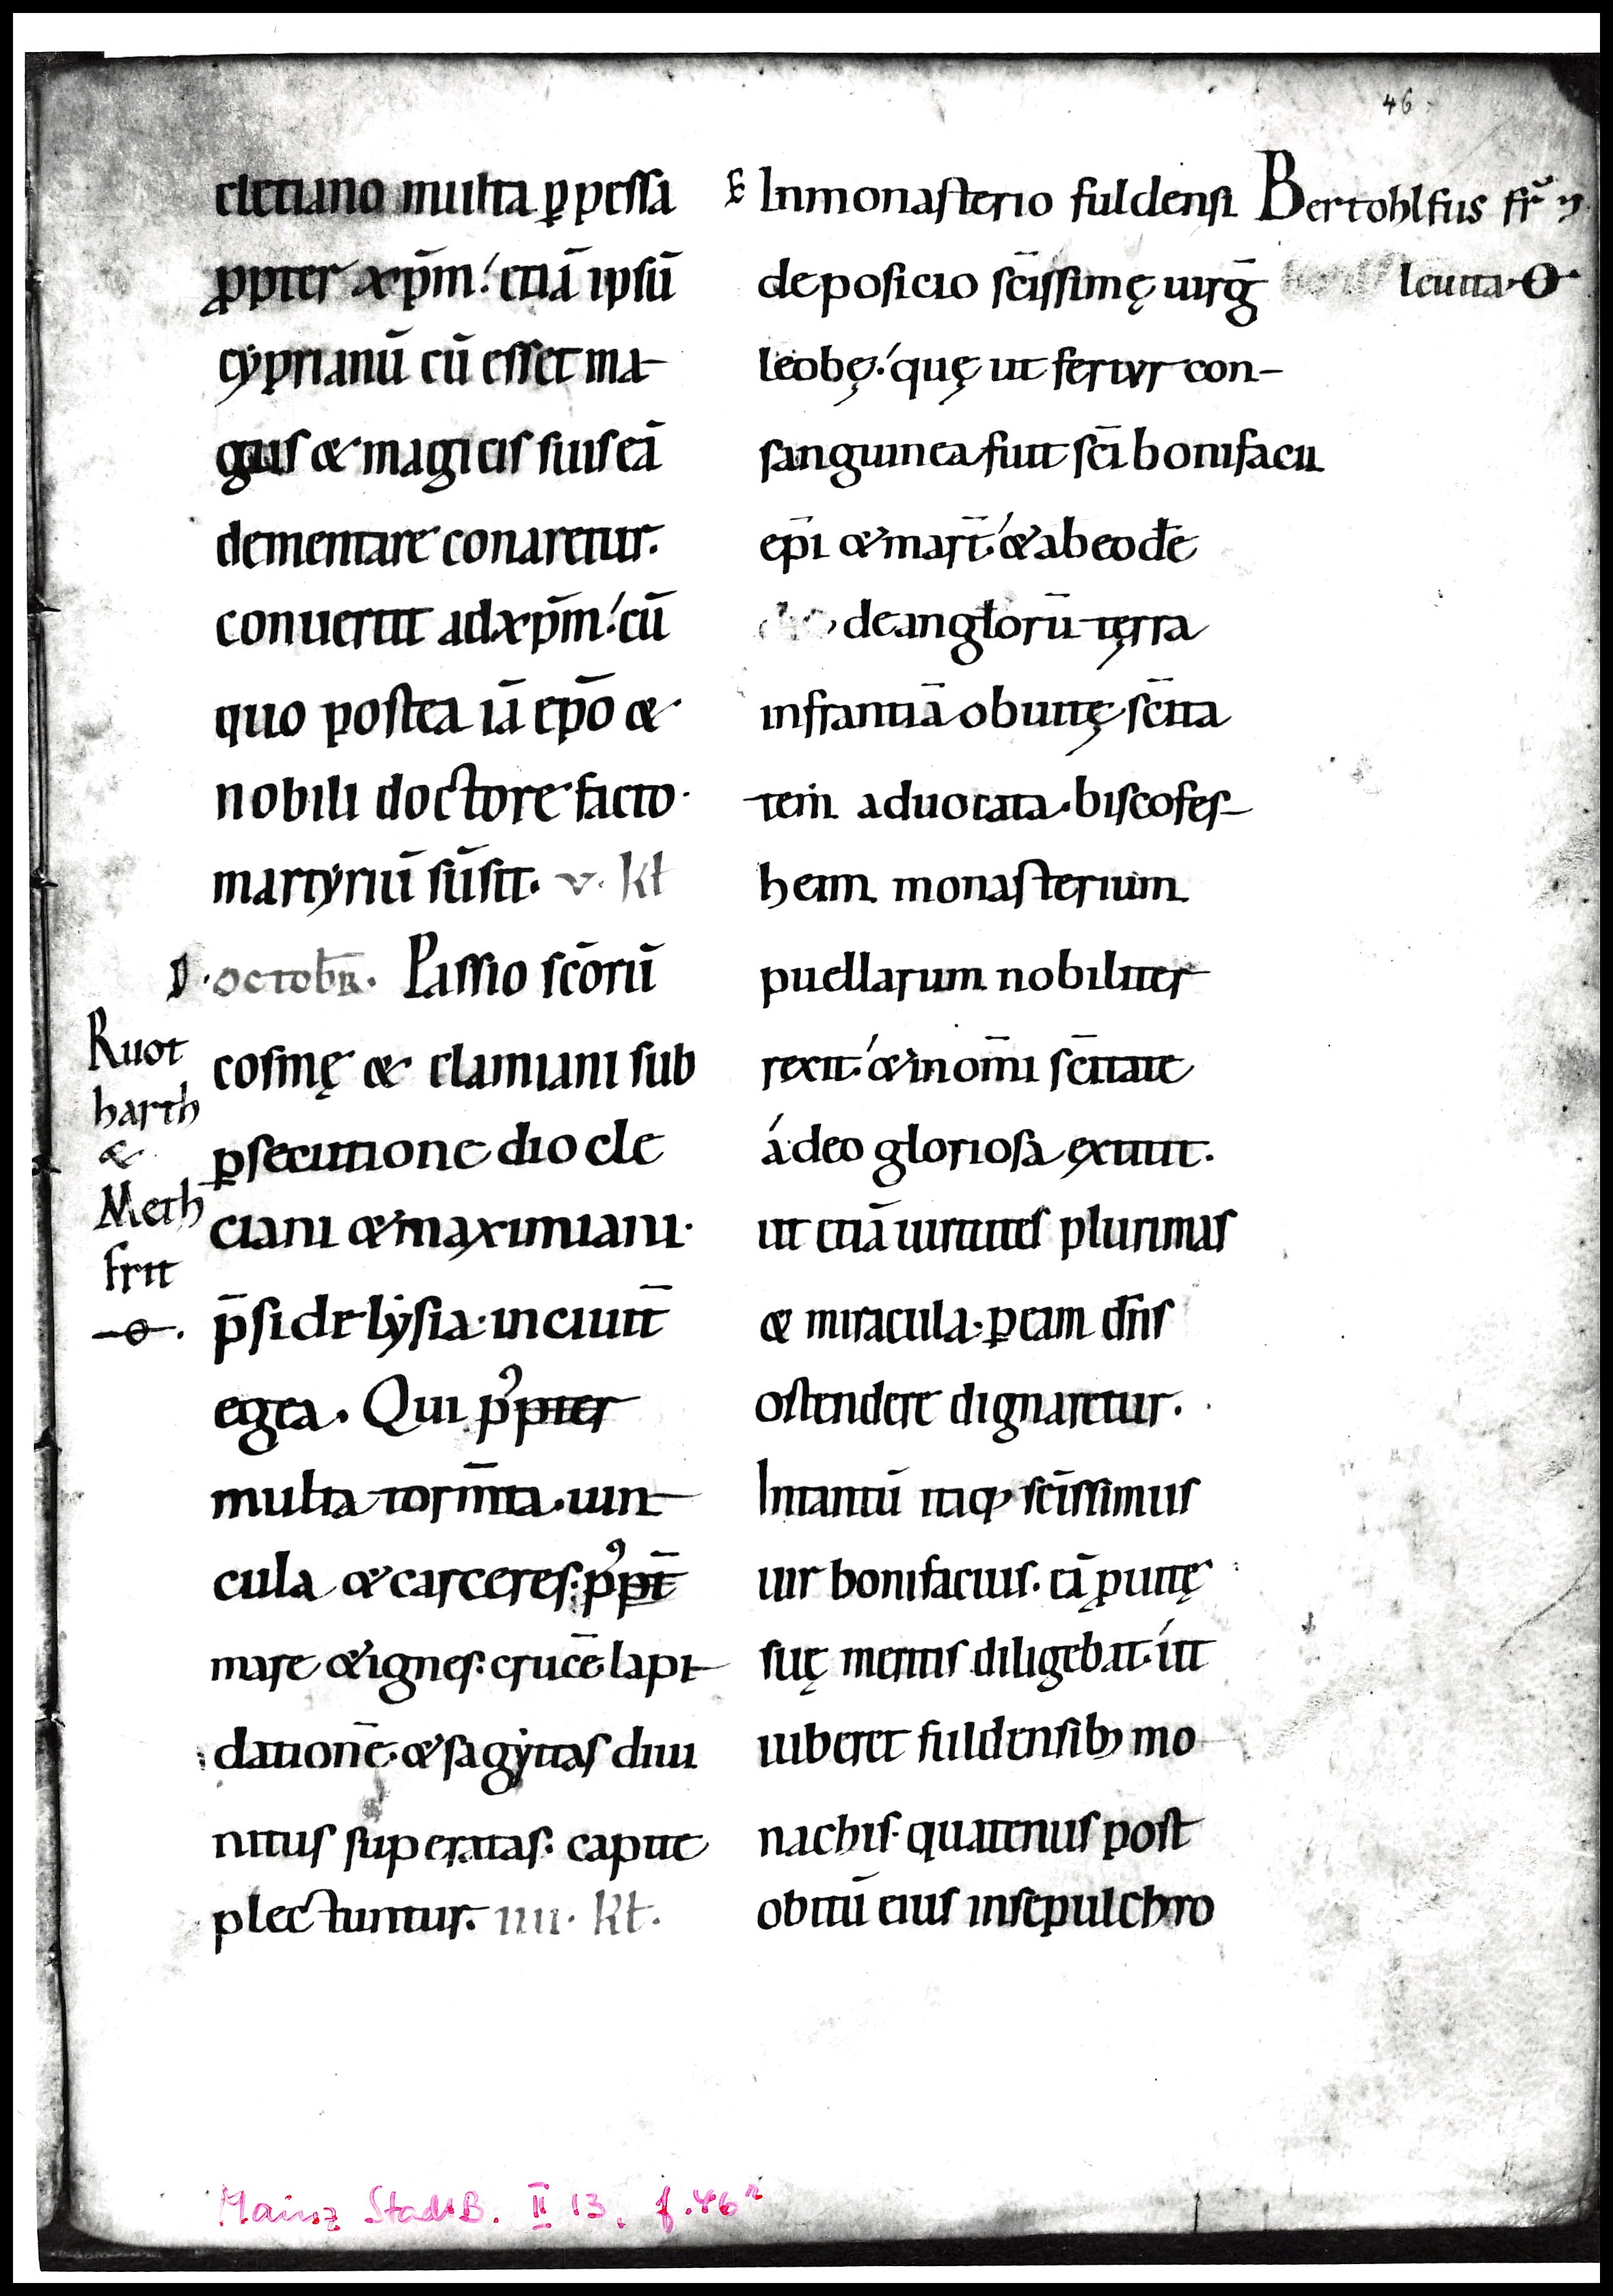 46
cletiano multa ꝑpessa
ꝓpter xp̄m. etiā ipsū
cẏprianū cū esset ma-
gus & magicis suis eā
dementare conaretur.
conuertit ad xp̄m. cū
quo postea iā ep̄o &
nobili doctore facto.
martẏriū sūsit. v. kł
D. octobr̄. Passio sc̄orū
cosmę & damiani sub
ꝑsecutione diocle
ciani & maximiani.
p̄side lẏsia. in ciuit̄
egea. Qui p̓pter
multa torm̄ta. uin-
cula & carceres. p̓pt̄
mare & ignes. crucē lapi-
dationē. & sagẏttas diui
nitus superatas. capite
plectuntur. iiii. kł.
Ruot
harth
&
Meth
frit
-o-.
E In monasterio fuldensi
deposicio sc̄issimę uirḡ
leobę. quę ut fertur con-
sanguinea fuit sc̄i bonifacii
ep̄i & mart̄. & ab eodē
de angłorū terra
in frantiā ob uitę sc̄ita
tem aduocata. biscofes-
heim monasterium
puellarum nobiliter
rexit. & in om̄i sc̄itate
ádeo gloriosa extitit.
ut etiā uirtutes plurimas
& miracula. ꝑ eam dn̄s
ostendere dignaretur.
Intantū itaq; sc̄issimus
uir bonifacius. eā ꝓ uitę
suę meritis diligebat. ut
iuberet fuldensib; mo
nachis. quatenus post
obitū eius in sepulchro
Bertohlfus fr̄
leutta. O.
Mainz StadtB. II 13, f. 46r